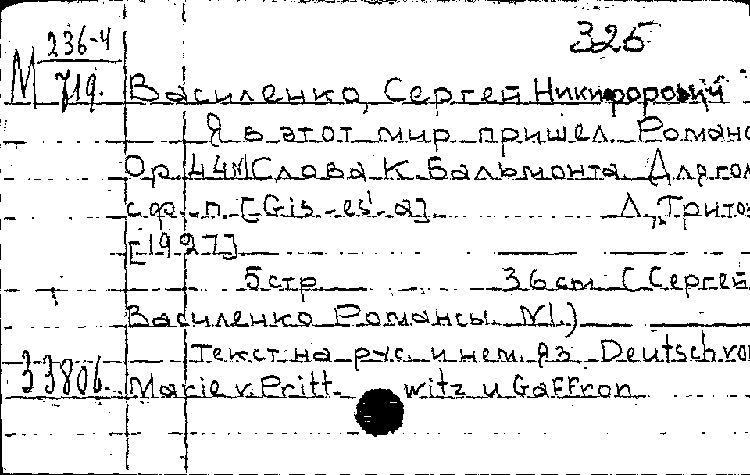 325
М 236-4
719.
Василенко, Сергей Никифорович
Я в этот мир пришел. Романс
Ор. 44 №1 Слова К. Бальмонта. Для гол
с фп. [Gis-es²-a]. Л., Тритон
[1927]
5 стр 36 cm. (Сергей
Василенко Романсы. №1.)
Текст на рус. и нем. яз. Deutsch von
33806. Marie v. Pritt- witz u Gaffron